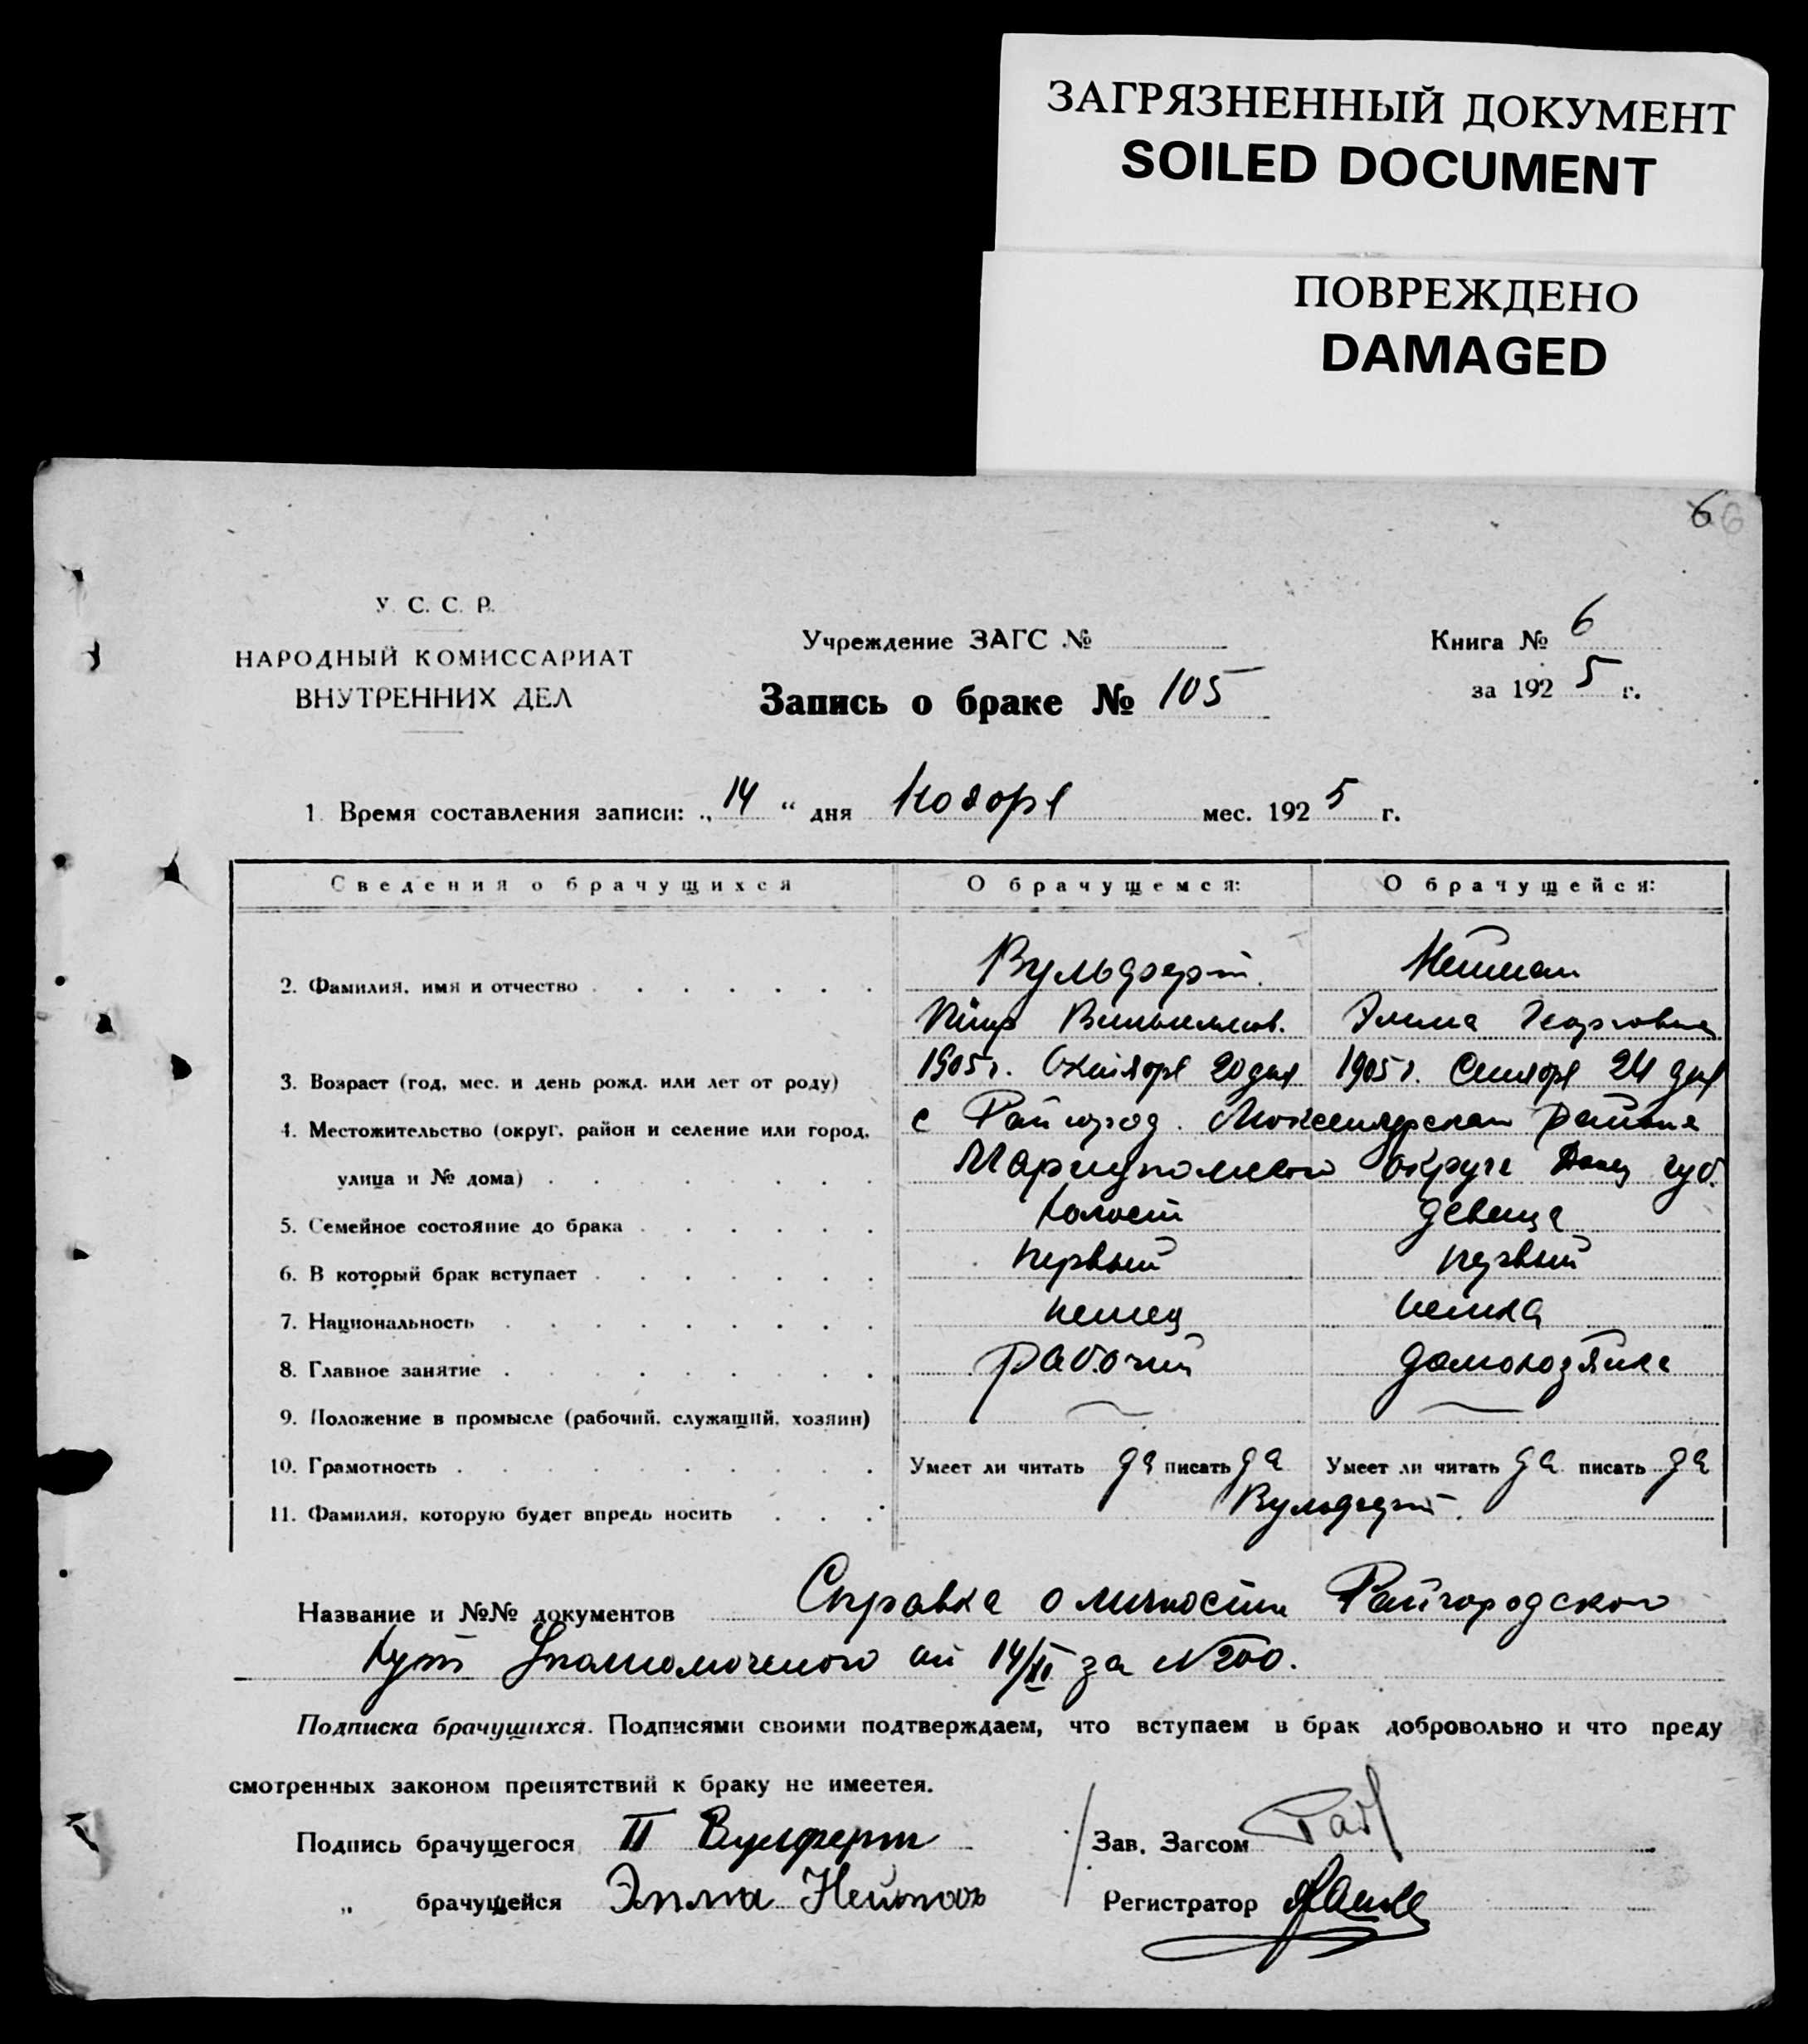 ЗАГРЯЗНЕННЫЙ ДОКУМЕНТ
SOILED DOCUMENT
ПОВРЕЖДЕНО
DAMAGED
6 6
У. С. С. Р.
НАРОДНЫЙ КОМИССАРИАТ
ВНУТРЕННИХ ДЕЛ
Учреждение ЗАГС №
Запись о браке № 105
Книга № 6
за 1925 г.
1. Время составления записи: „14“ дня Ноября мес. 1925 г.
Сведения о брачущихся О брачущемся: О брачущейся:
2. Фамилия, имя и отчество Вульферт. Нейман
Петр Вильгельмов. Эмма Георговна
3. Возраст (год, мес. и день рожд. или лет от роду) 1905 г. Октября 20 дня 1905 г. Сентября 24 дня
4. Местожительство (округ, район и селение или город, с Райгород. Люксембургскаго района
улица и № дома) Мариупольского округа Донец губ.
5. Семейное состояние до брака холост девица
6. В который брак вступает первый первый
7. Национальность немец немка
8. Главное занятие рабочий домохозяйка
9. Положение в промысле (рабочий, служащий, хозяин)
10. Грамотность Умеет ли читать да писать да Умеет ли читать да писать да
11. Фамилия, которую будет впредь носить Вульферт.
Название и №№ документов Справка о личности Райгородского
Хут Уполномоченого от 14/XI за N 200.
Подписка брачущихся. Подписями своими подтверждаем, что вступаем в брак добровольно и что преду
смотренных законом препятствий к браку не имеетея.
Подпись брачущегося П Вулферт Зав. Загсом
„ брачущейся Эмма Нейман Регистратор